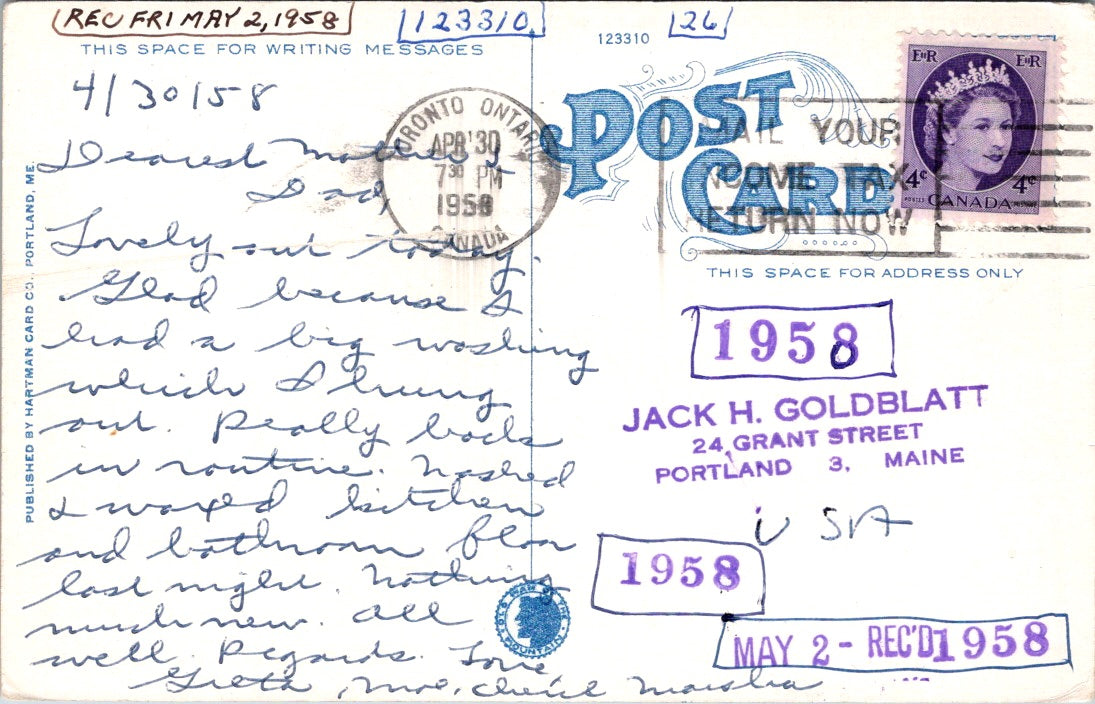 REC FRI MAY 2, 1958
123310
26
THIS SPACE FOR WRITING MESSAGES
123310
4/30/58
Dearest Mother &
Dad,
Lovely out today.
Glad because I
had a big washing
which I hung
out. Really back
in routine. Washed
& waxed kitchen
and bathroom floor
last night. Nothing
much new. All
well. Regards. Love
Greta, Moe, Cheril Marsha
PUBLISHED BY HARTMAN CARD CO., PORTLAND, ME.
TORONTO ONTARIO
APR 30
7 30 PM
1958
CANADA
POST CARD
MAIL YOUR
INCOME TAX
RETURN NOW
EIIR EIIR
4¢ 4¢
POSTES CANADA
THIS SPACE FOR ADDRESS ONLY
1958
JACK H. GOLDBLATT
24 GRANT STREET
PORTLAND 3, MAINE
USA
1958
MAY 2 - REC'D 1958
OLD MAN OF THE MOUNTAIN